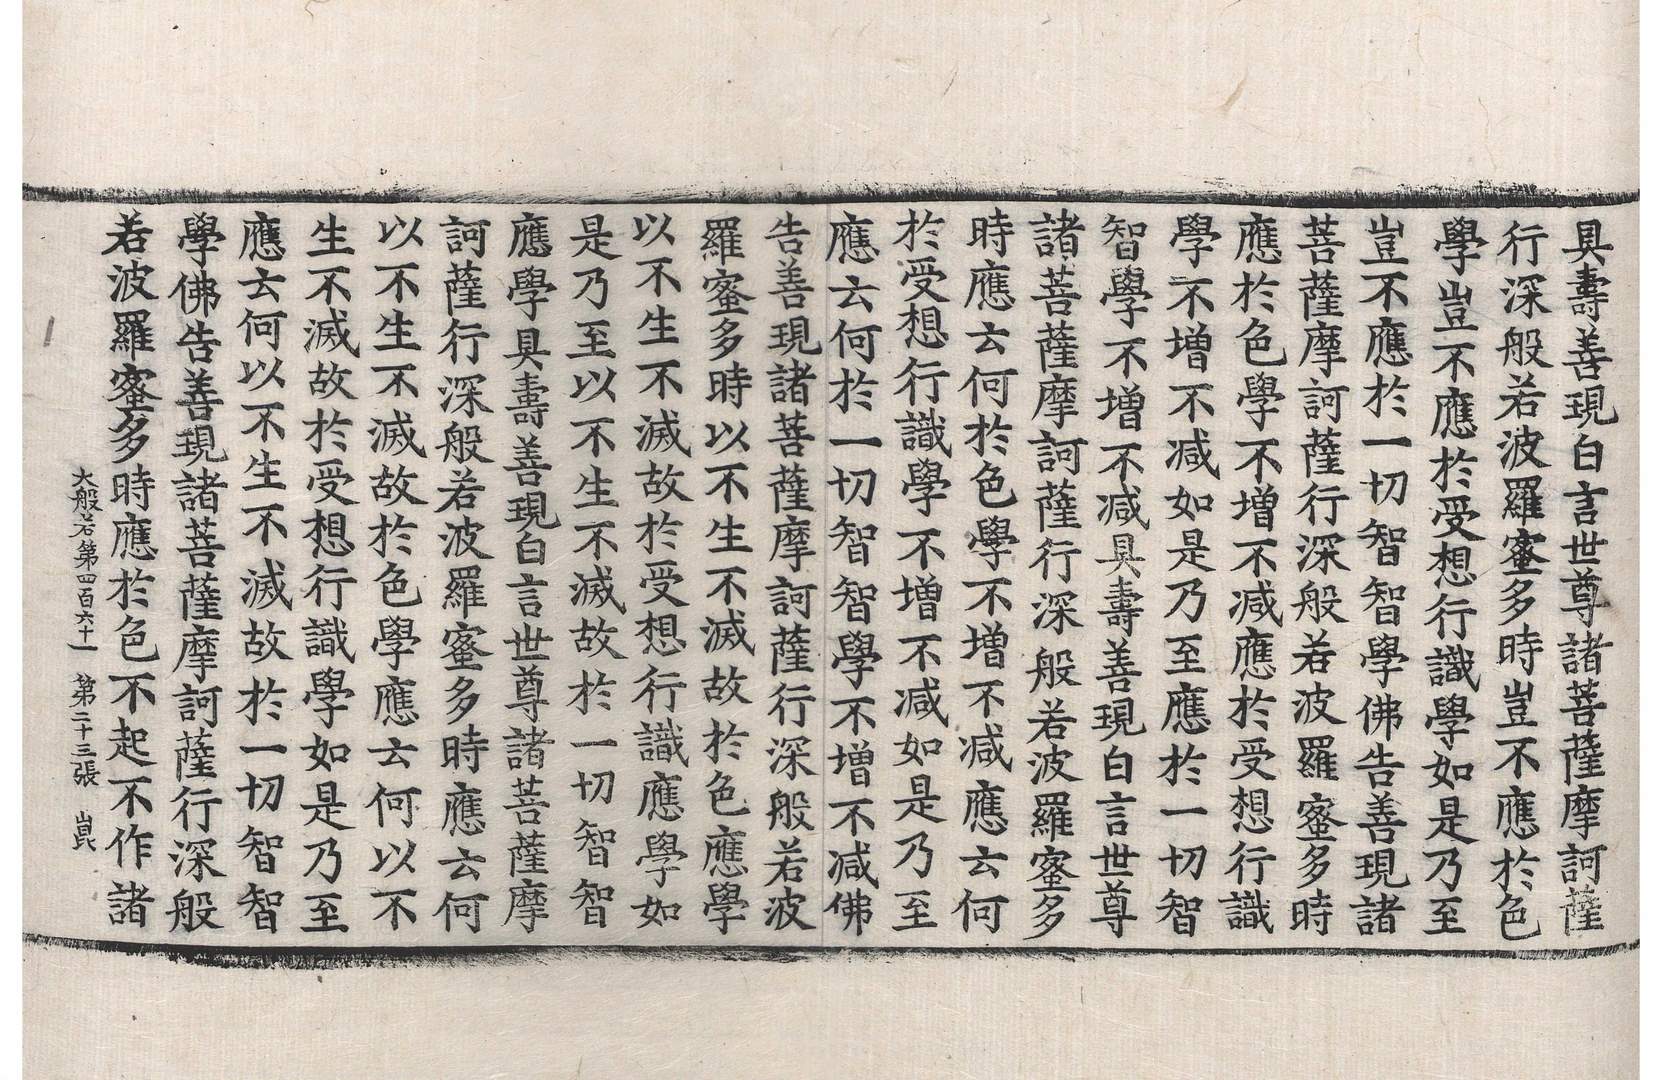 具壽善現白言世尊諸菩薩摩訶薩
行深般若波羅蜜多時豈不應於色
學豈不應於受想行識學如是乃至
豈不應於一切智智學佛告善現諸
菩薩摩訶薩行深般若波羅蜜多時
應於色學不增不減應於受想行識
學不增不減如是乃至應於一切智
智學不增不減具壽善現白言世尊
諸菩薩摩訶薩行深般若波羅蜜多
時應云何於色學不增不減應云何
於受想行識學不增不減如是乃至
應云何於一切智智學不增不減佛
告善現諸菩薩摩訶薩行深般若波
羅蜜多時以不生不滅故於色應學
以不生不滅故於受想行識應學如
是乃至以不生不滅故於一切智智
應學具壽善現白言世尊諸菩薩摩
訶薩行深般若波羅蜜多時應云何
以不生不滅故於色學應云何以不
生不滅故於受想行識學如是乃至
應云何以不生不滅故於一切智智
學佛告善現諸菩薩摩訶薩行深般
若波羅蜜多時應於色不起不作諸
大般若第四百六十一 第二十三張 崑